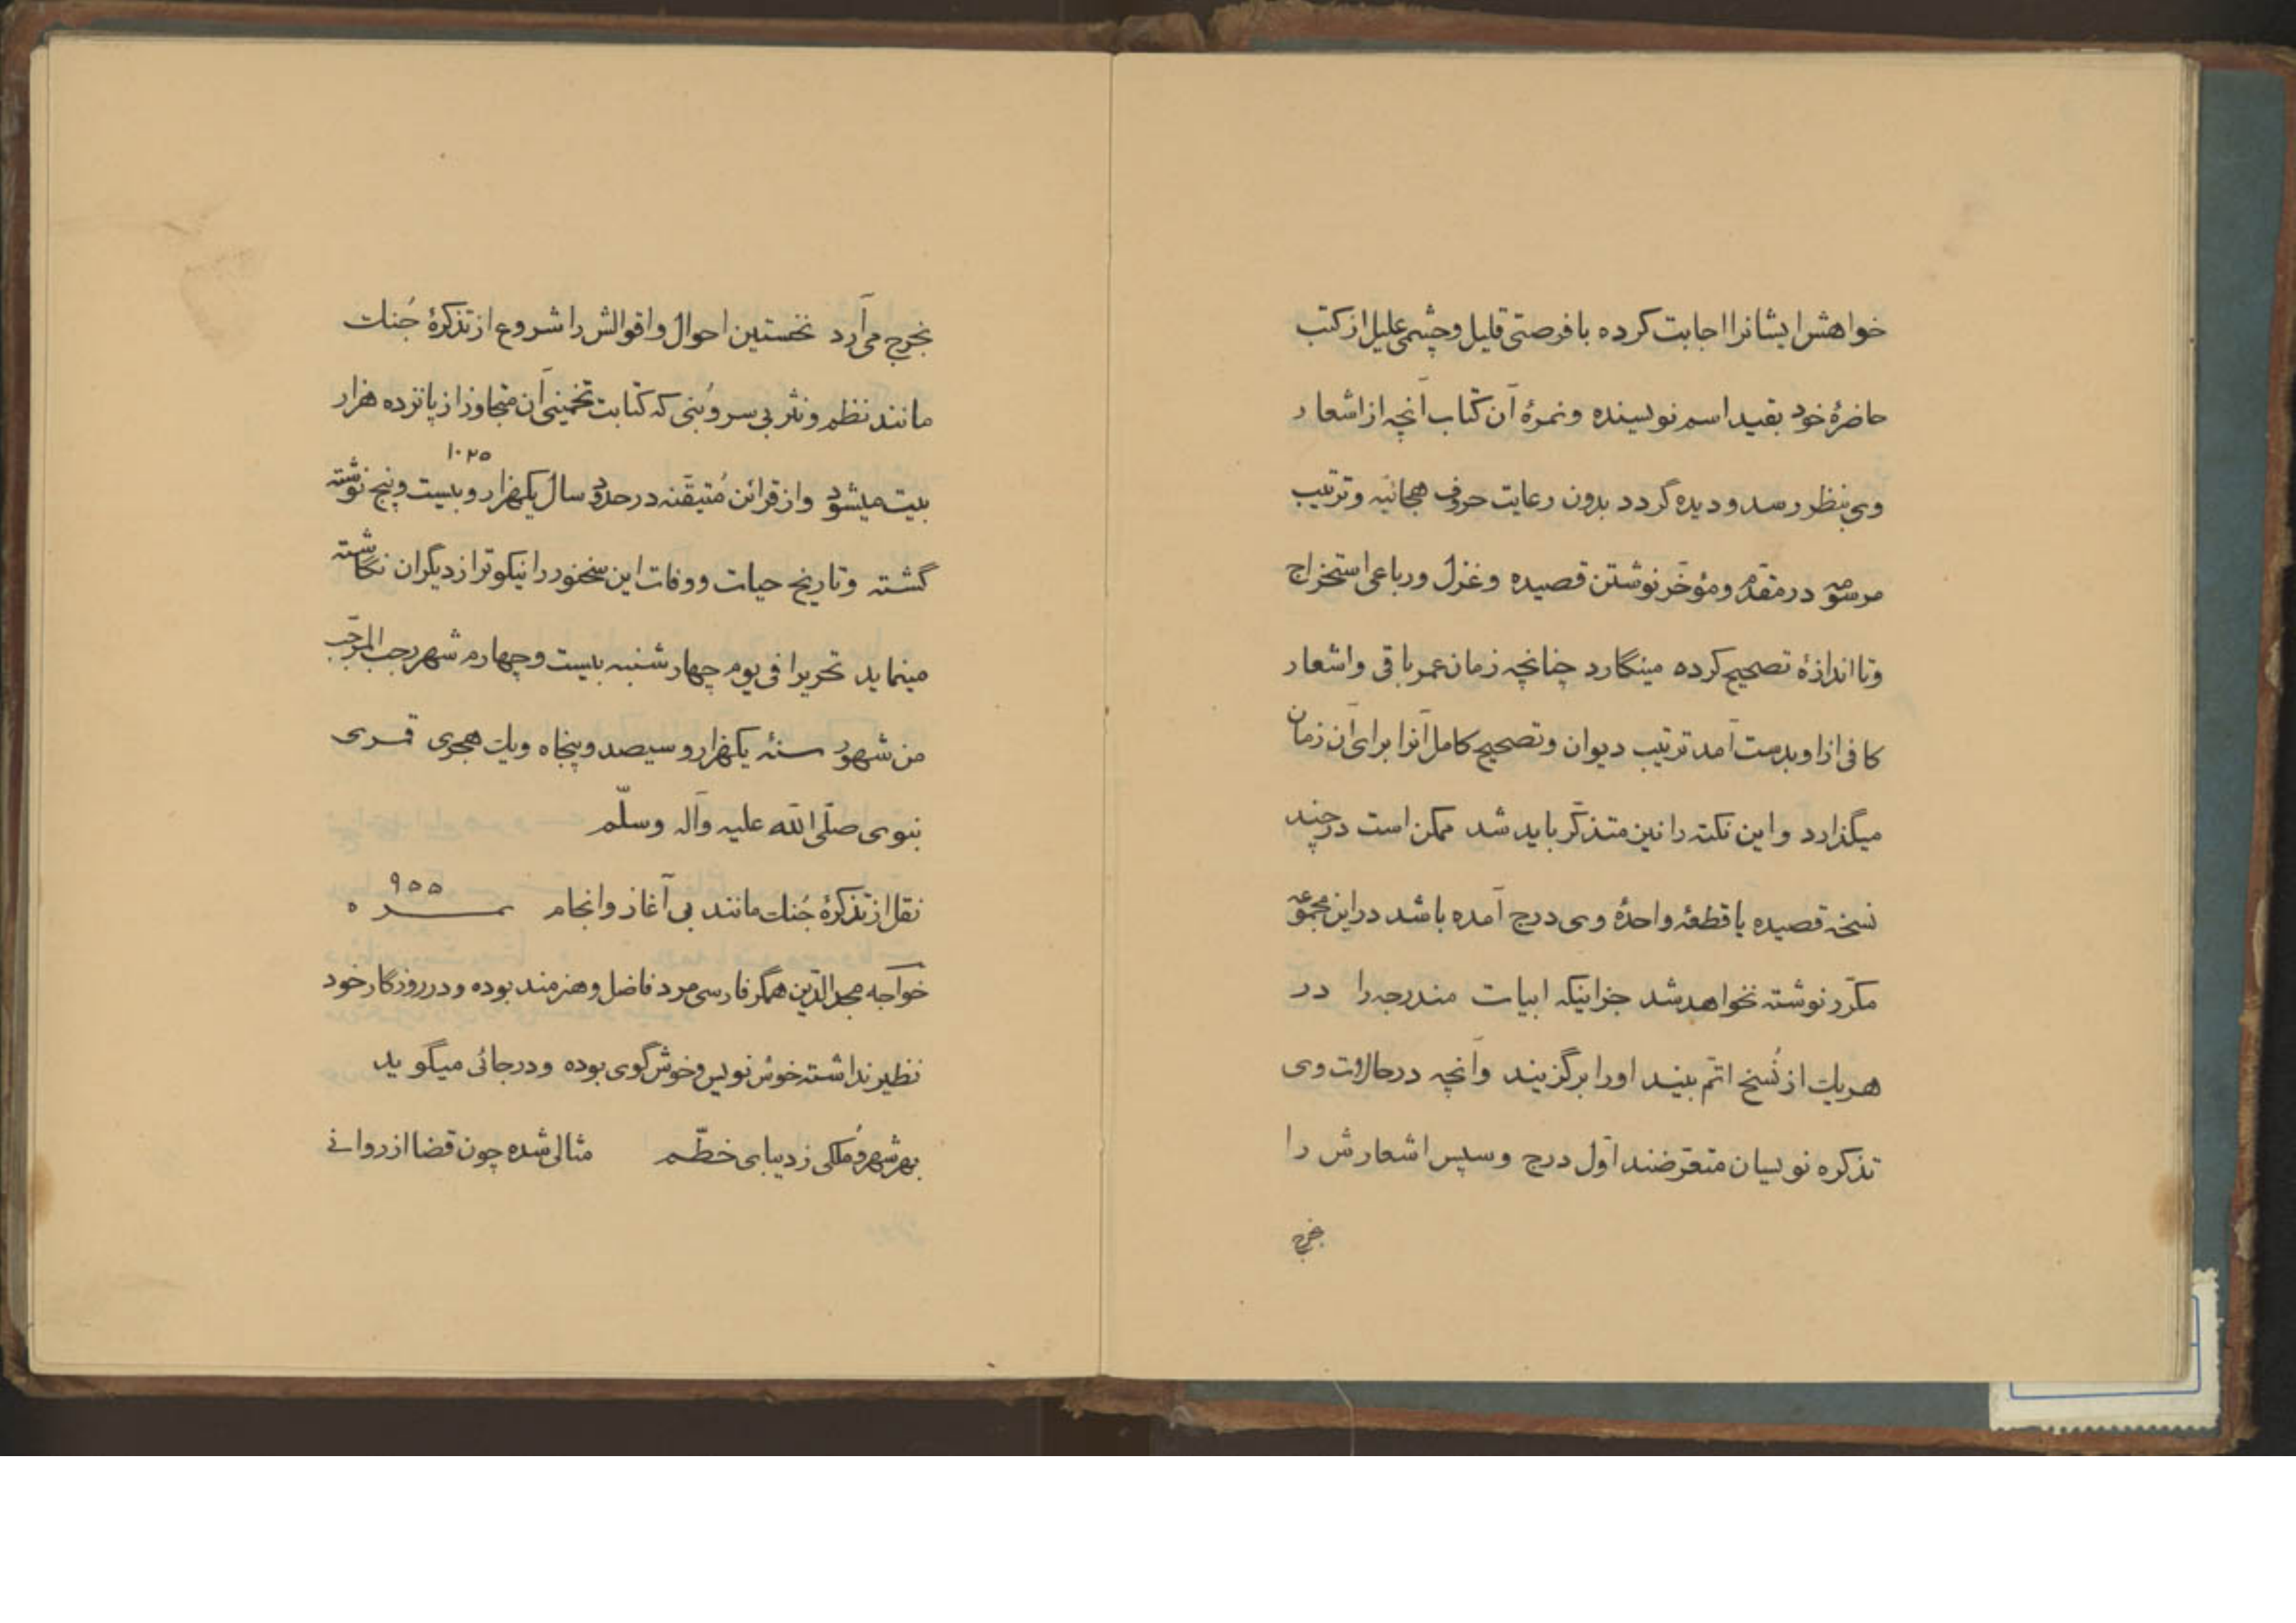 خواهش ایشانرا اجابت کرده با فرصتی قلیل و چشمی علیل از کتب
حاضرهٔ خود بقید اسم نویسنده و نمرهٔ آن کتاب آنچه از اشعار
وی بنظر رسد و دیده گردد بدون رعایت حروف هجائیه و ترتیب
مرسومه در مقدّم و مؤخّر نوشتن قصیده و غزل و رباعی استخراج
و تا اندازهٔ تصحیح کرده مینگارد چنانچه زمان عمر باقی و اشعار
کافی از او بدست آمد ترتیب دیوان و تصحیح کامل آنرا برای آن زمان
میگذارد و این نکته را نیز متذکّر باید شد ممکن است در چند
نسخه قصیده یا قطعهٔ واحدهٔ وی درج آمده باشد در این مجموعه
مکرّر نوشته نخواهد شد جز اینکه ابیات مندرجه را در
هریک از نُسخ اتمّ بیند او را برگزیند و آنچه در حالات وی
تذکره نویسان متعرّضند اوّل درج و سپس اشعارش را
بخرج
بخرج می‌آرد نخستین احوال و اقوالش را شروع از تذکرهٔ جُنک
مانند نظم و نثر بی سر و بُنی که کتابت تخمینی آن متجاوز از پانزده هزار
۱۰۲۵
بیت میشود و از قرائن مُتیقّنه در حدود سال یکهزار و بیست و پنج نوشته
گشته و تاریخ حیات و وفات این سخنور را نیکوتر از دیگران نگاشته
مینماید تحریرا فی یوم چهارشنبه بیست و چهارم شهر رجب المرجّب
من شهور سنهٔ یکهزار و سیصد و پنجاه و یک هجری قمری
نبوی صلّی الله علیه و آله وسلّم
نقل از تذکرهٔ جُنک مانند بی آغاز و انجام نمره ۹۵۵
خواجه مجدالدّین همگر فارسی مرد فاضل و هنرمند بوده و در روزگار خود
نظیر نداشته خوش نویس و خوش گوی بوده و در جائی میگوید
بهر شهر و مُلکی ز دیبای خطّم مثالی شده چون قضا از روانی